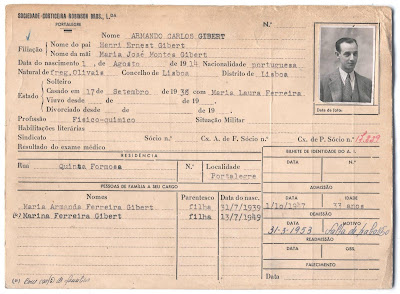 SOCIEDADE CORTICEIRA ROBINSON BROS., L.DA
PORTALEGRE
N.º
Nome ARMANDO CARLOS GIBERT
Filiação Nome do pai Henri Ernest Gibert
Nome da mãi Maria José Montes Gibert
Data do nascimento 1, Agosto de 1914 Nacionalidade portuguesa
Natural de freg. Olivais Concelho de Lisboa Distrito de Lisboa
Estado
Solteiro
Casado em 17 de Setembro de 1938 com Maria Laura Ferreira
Viuvo desde de de 19
Divorciado desde de de 19
Data da foto
Profissão Físico-químico Situação Militar
Habilitações literárias
Sindicato Sócio n.º Cx. A. de F. Sócio n.º Cx. de P. Sócio n.º 17.829
Resultado do exame médico
RESIDÊNCIA
Rua Quinta Formosa N.º Localidade Portalegre
BILHETE DE IDENTIDADE DO A. I.
DATA N.º
PESSOAS DE FAMÍLIA A SEU CARGO
Nomes Parentesco Data do nasc.
Maria Armanda Ferreira Gibert filha 31/7/1939
(*) Marina Ferreira Gibert filha 13/7/1949
ADMISSÃO
DATA IDADE
1/10/1947 33 anos
DEMISSÃO
DATA MOTIVO
31-3-1953 Falta de trabalho
READMISSÃO
DATA OBS.
FALECIMENTO
Data